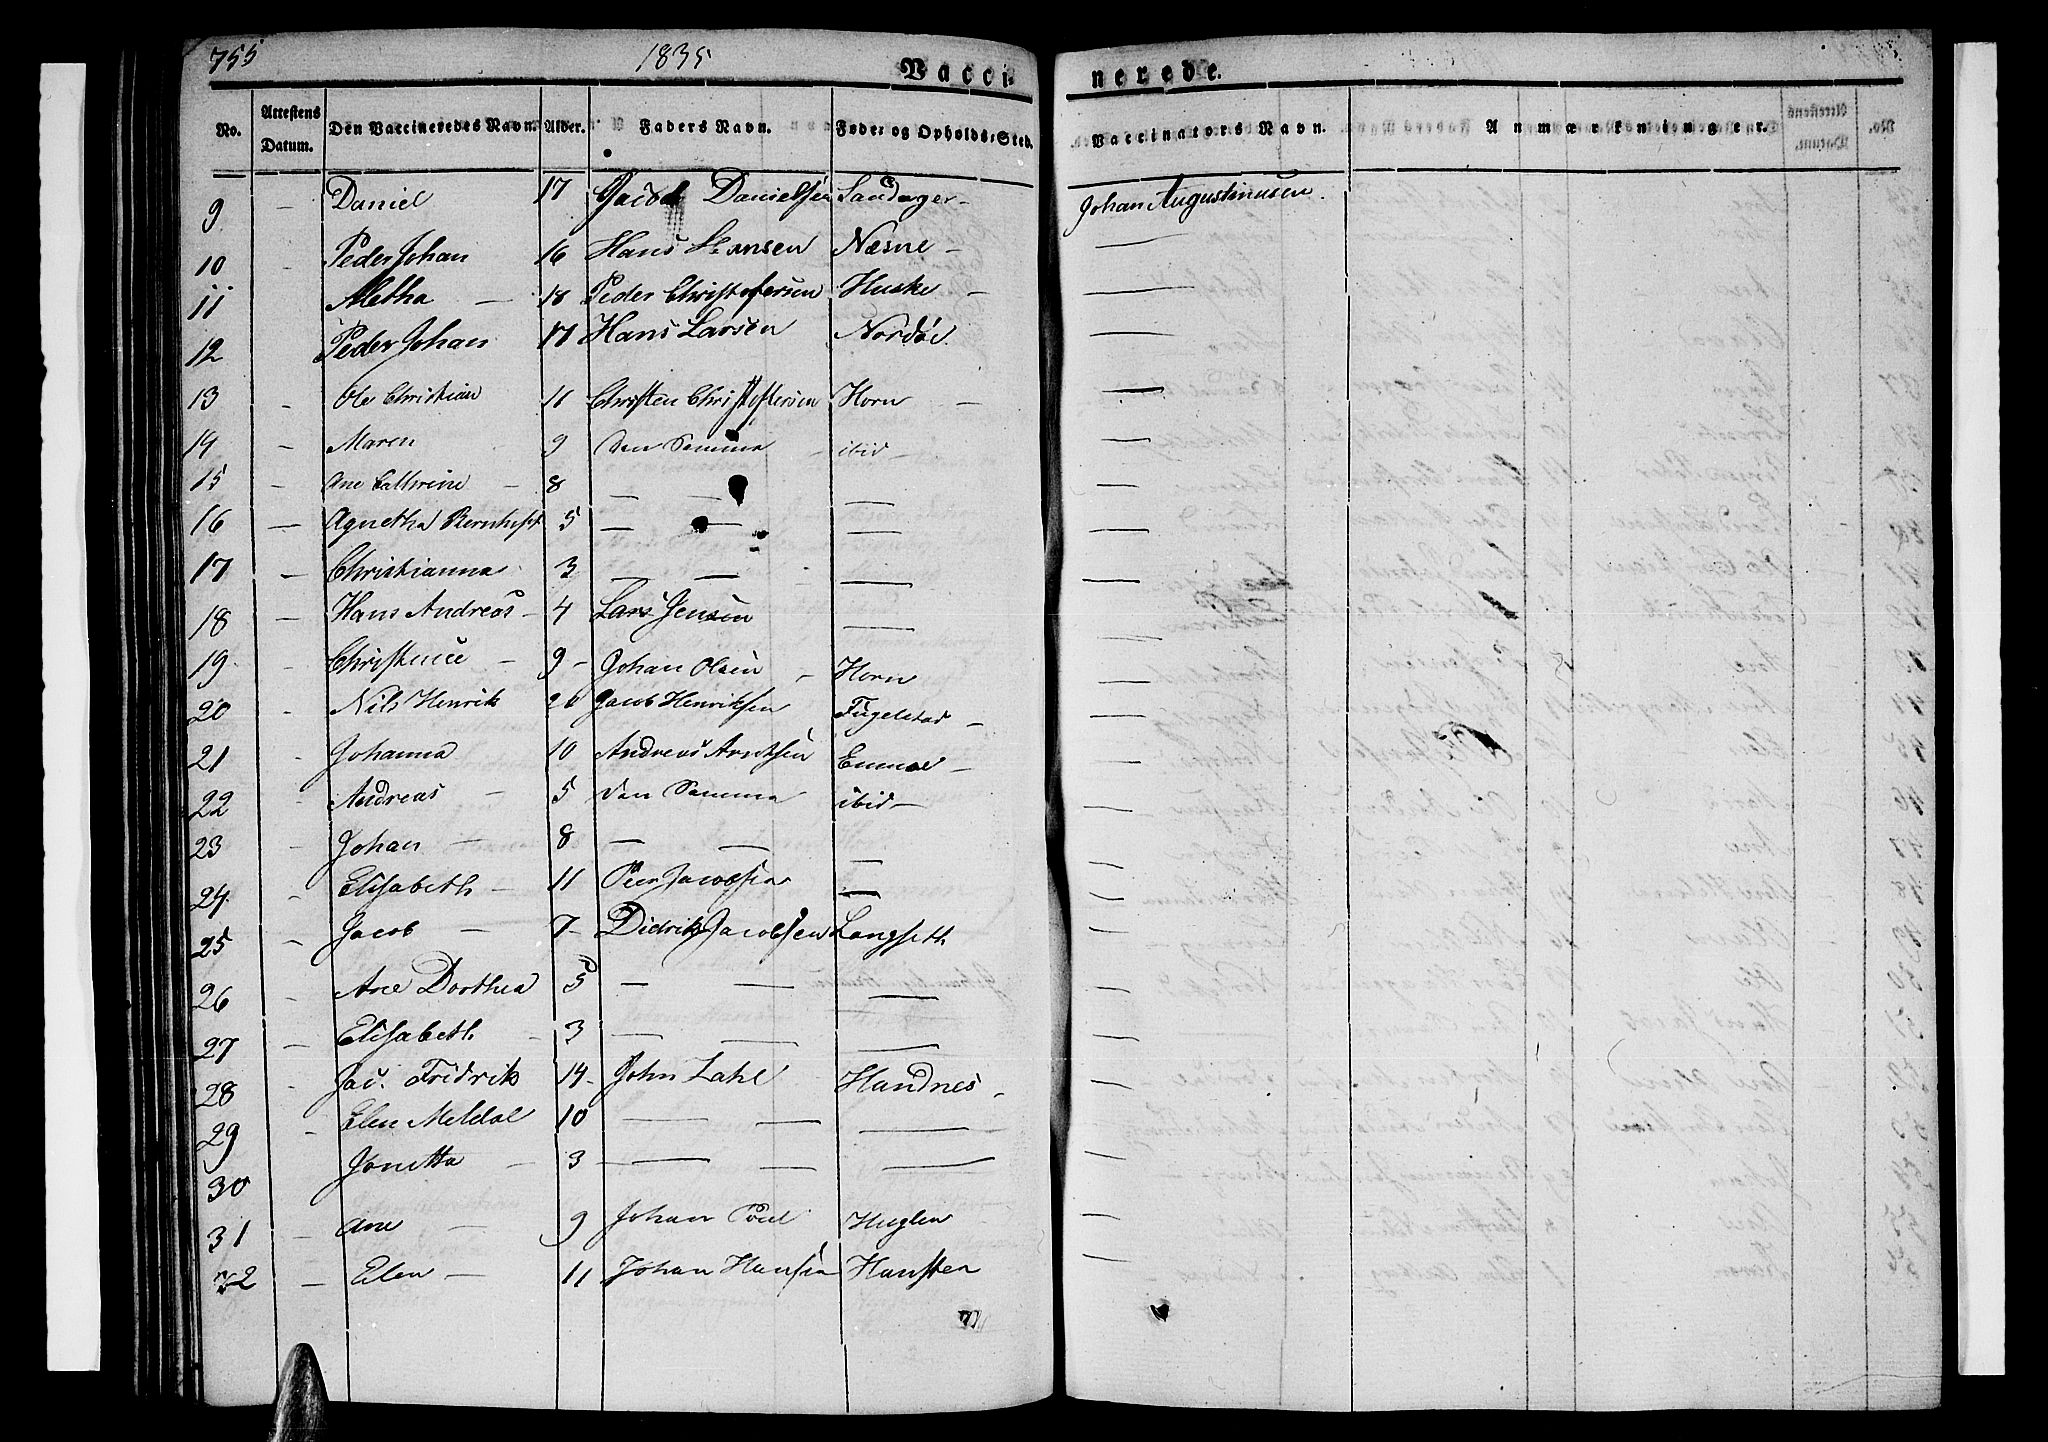 755 1835 Vacci- nerede.
No. Attestens Datum. Den Vaccineredes Navn. Alder. Faders Navn. Føde- og Opholds-Sted. Vaccinators Navn. Anmærkninger.
9 — Daniel 17 Jacob Danielsen Sandager — Johan Augustinusen.
10 - Peder Johan 16 Hans Hansen Næsne — —
11 - Aletha — 18 Peder Christofersen Huske — —
12 Peder Johan 17 Hans Larsen Nordøe. —
13 - Ole Christian 11 Christen Christofersen Horn — —
14 - Maren 9 Den Samme - ibid — —
15 - Ane Cathrine - 8 — — — —
16 — Agnetha 5 — — — —
17 — Christianna 3 — — — —
18 — Hans Andreas - 4 Lars Jensen — —
19 - — 9 - Johan Olsen - Horn —
20 - Nils Henrik 26 Jacob Henriksen Fugelstad — —
21 - Johanna 10 Andreas Arntsen —
22 - Andreas — 5 Den Samme ibid — —
23 - Johan — 8 — — — —
24 - Elisabeth - 11 Peer Jacobsen — —
25 - Jacob — 7 - Didrik Jacobsen Langseth —
26 - Ane Dorthea 5 — — — —
27 — Elisabeth - 3 — — — —
28 - Jac. Fridrik 14 - John Zahl Handnes - —
29 - Elen Meldal 10 — — — —
30 Jonetta - 3 - — — — —
31 - Ane — 9 Johan Poul Huglen —
32 — Elen — 11 Johan Hansen Hansten —